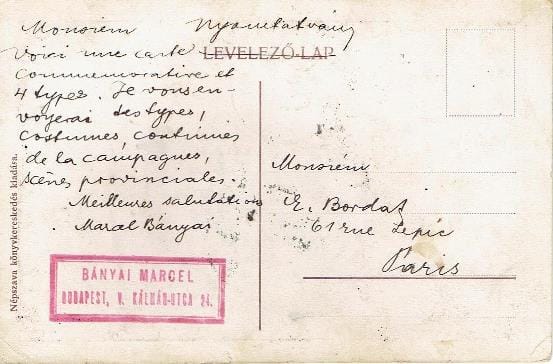 Monsorém Nyomtatvány
LEVELEZŐ-LAP
Voici une carte
commemorative et
4 types. Je vous en-
voyerai des types,
costumes, contumes
de la campagnes,
scènes provinciales.
Meilleures salutation
Marcel Bányai
Monsorém
E. Bordat
61 rue Lepic
Paris
BÁNYAI MARCEL
BUDAPEST, V. KÁLMÁN-UTCA 24.
Népszava könyvkereskedés kiadása.